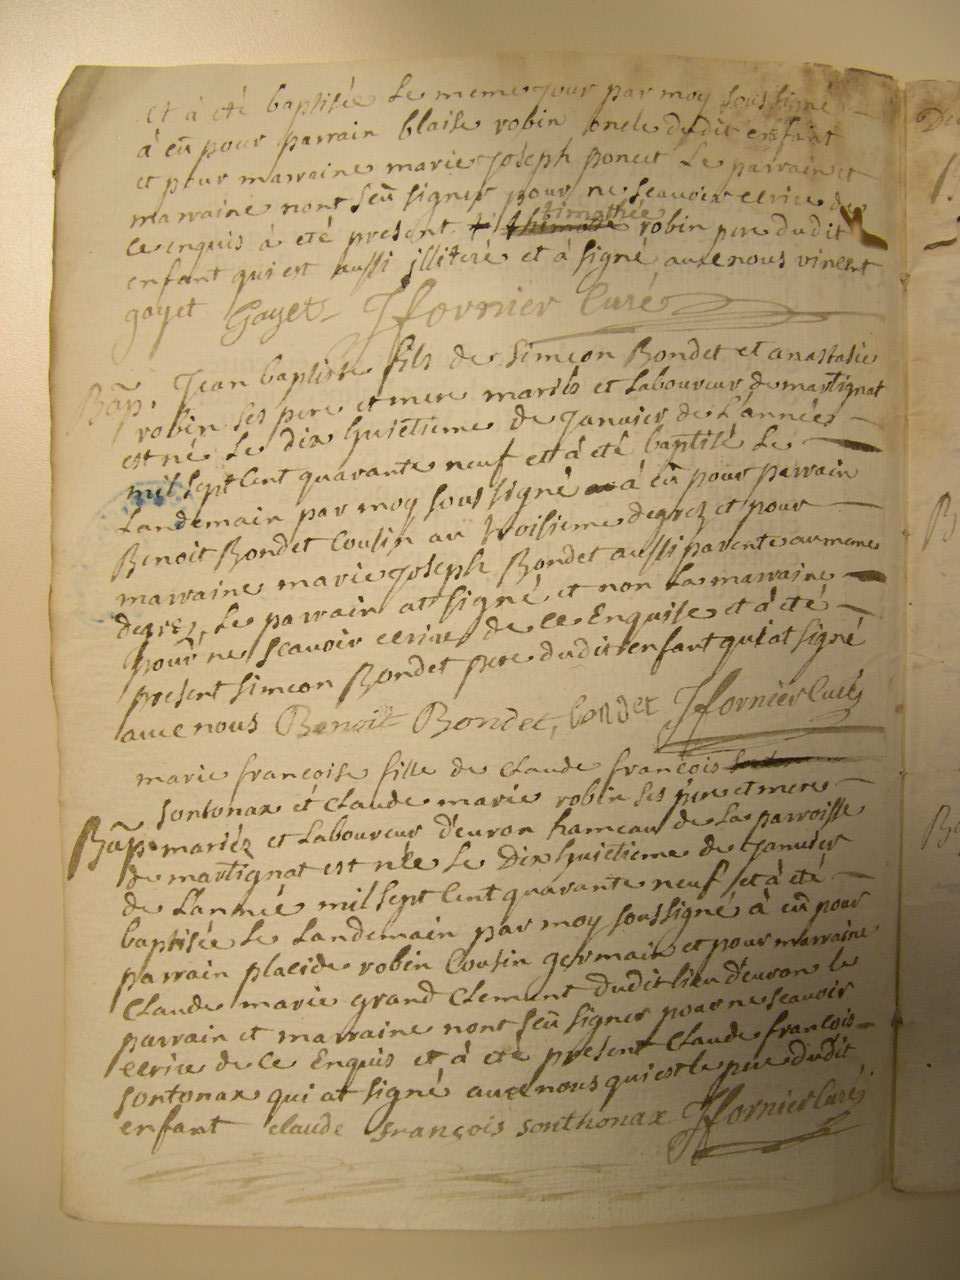 et à été baptisée Le meme jour par moy soussigné
à eû pour parrain blaise robin oncle dudit enfant
et pour marraine marie joseph poncet Le parrain et
marraine nont sçû signer pour ne sçauoir ecrire de
timothée
ce enquis à eté present robin pere dudit
enfant qui est aussi illiteré et à signé auec nous vincent
gayet Gayet Jfornier Curé
Bap. Jean baptiste fils de simeon Bondet et anastasie
robin ses pere et mere mariés et Laboureur de martignat
est né Le dix huitieme de Januier de L'année
mil sept Cent quarante neuf et à eté baptisé Le
Landemain par moy sous signé à eû pour parrain
Benoit Bondet Cousin au troisieme degrez et pour
marraine marie joseph Bondet aussi parente au meme
degrez, Le parrain at signé et non La marraine
pour ne sçauoir ecrire de ce Enquise et à eté
present simeon Bondet pere dudit enfant qui at signé
auec nous Benoit Bondet, bondet Jfornier Curé
marie françoise fille de Claude françois
sontonax et Claude marie robin ses pere et mere
Bap. mariéz et Laboureur d'euron hameau de La parroisse
de martignat est née Le Dix huitieme de Januier
de L'année mil sept Cent quarante neuf et à eté
baptisée Le Landemain par moy soussigné à eû pour
parrain placide robin Cousin germain et pour marraine
Claude marie grand Clement dudit lieu d'euron le
parrain et marraine nont sçû signer pour ne sçauoir
ecrire de ce Enquis et à eté present Claude françois
sontonax qui at signé auec nous qui est le pere dudit
enfant claude françois sonthonax Jfornier Curé